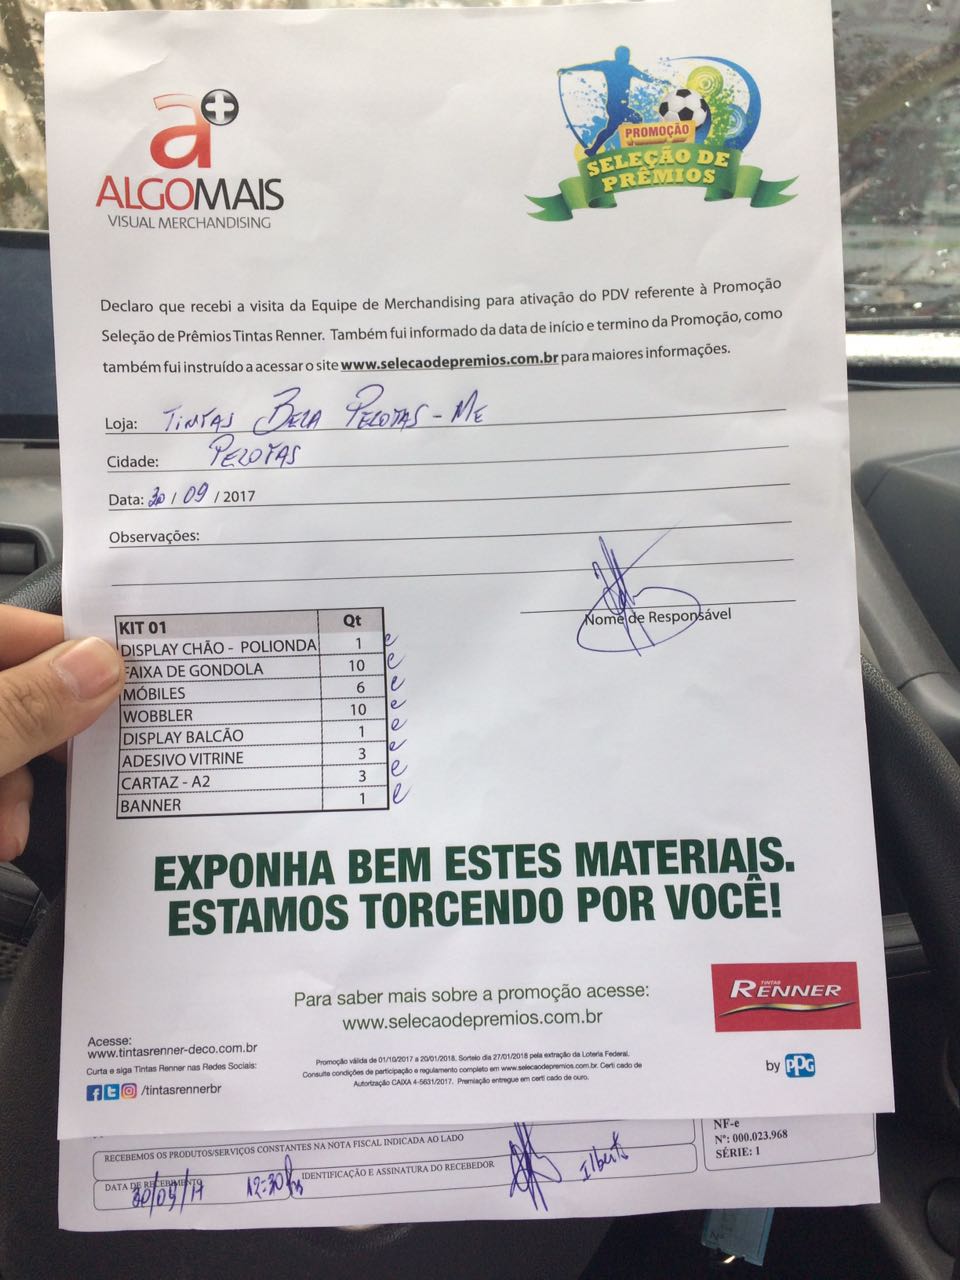 a+
ALGOMAIS
VISUAL MERCHANDISING
PROMOÇÃO
SELEÇÃO DE
PRÊMIOS
Declaro que recebi a visita da Equipe de Merchandising para ativação do PDV referente à Promoção
Seleção de Prêmios Tintas Renner. Também fui informado da data de início e termino da Promoção, como
também fui instruído a acessar o site www.selecaodepremios.com.br para maiores informações.
Loja: TINTAS BELA PELOTAS - ME
Cidade: PELOTAS
Data: 30 / 09 / 2017
Observações:
Nome de Responsável
KIT 01 Qt
DISPLAY CHÃO - POLIONDA 1
FAIXA DE GONDOLA 10
MÓBILES 6
WOBBLER 10
DISPLAY BALCÃO 1
ADESIVO VITRINE 3
CARTAZ - A2 3
BANNER 1
EXPONHA BEM ESTES MATERIAIS.
ESTAMOS TORCENDO POR VOCÊ!
Para saber mais sobre a promoção acesse:
www.selecaodepremios.com.br
TINTAS
RENNER
by PPG
Acesse:
www.tintasrenner-deco.com.br
Curta e siga Tintas Renner nas Redes Sociais:
/tintasrennerbr
Promoção válida de 01/10/2017 a 20/01/2018. Sorteio dia 27/01/2018 pela extração da Loteria Federal.
Consulte condições de participação e regulamento completo em www.selecaodepremios.com.br. Certi cado de
Autorização CAIXA 4-5631/2017. Premiação entregue em certi cado de ouro.
RECEBEMOS OS PRODUTOS/SERVIÇOS CONSTANTES NA NOTA FISCAL INDICADA AO LADO
DATA DE RECEBIMENTO
30/09/17 12:30hs
IDENTIFICAÇÃO E ASSINATURA DO RECEBEDOR
Ilberto
NF-e
Nº: 000.023.968
SÉRIE: 1